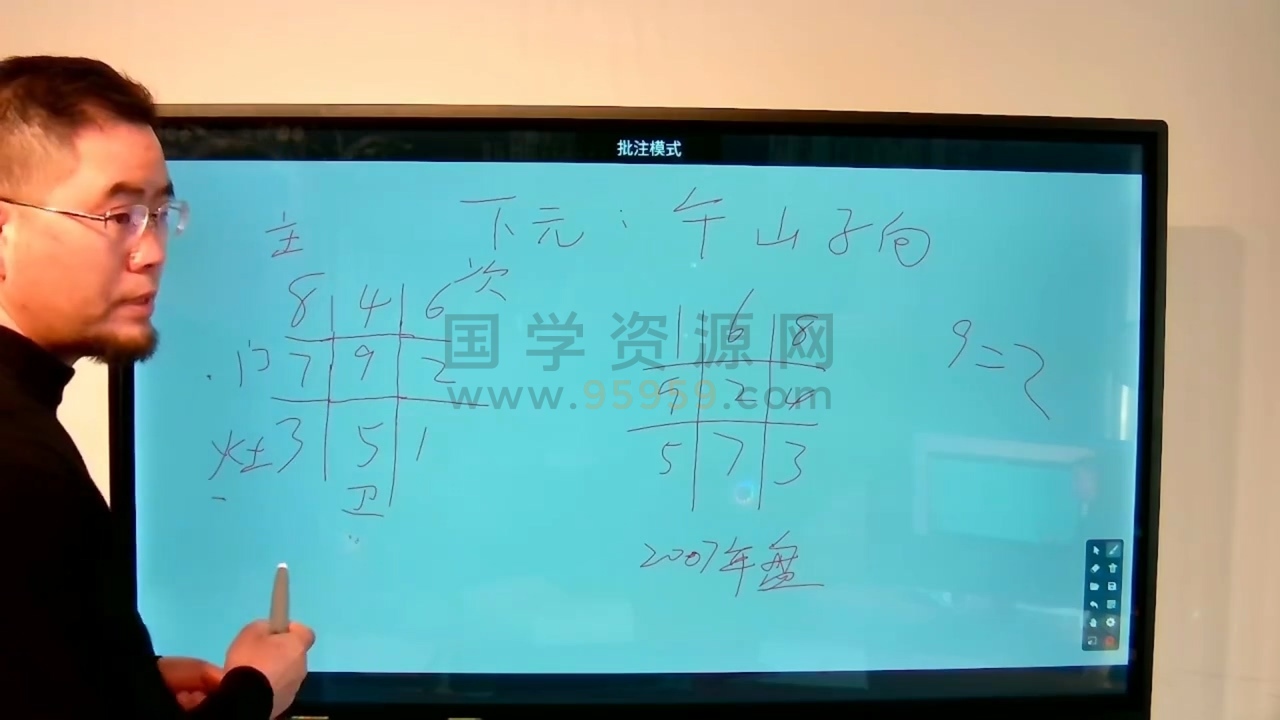 批注模式
下元：午山子向
主
8 4 6 次
门 7 9 2
灶 3 5 1
卫
1 6 8
9 2 4
5 7 3
2007年盘
9=2
国学资源网
www.95959.com